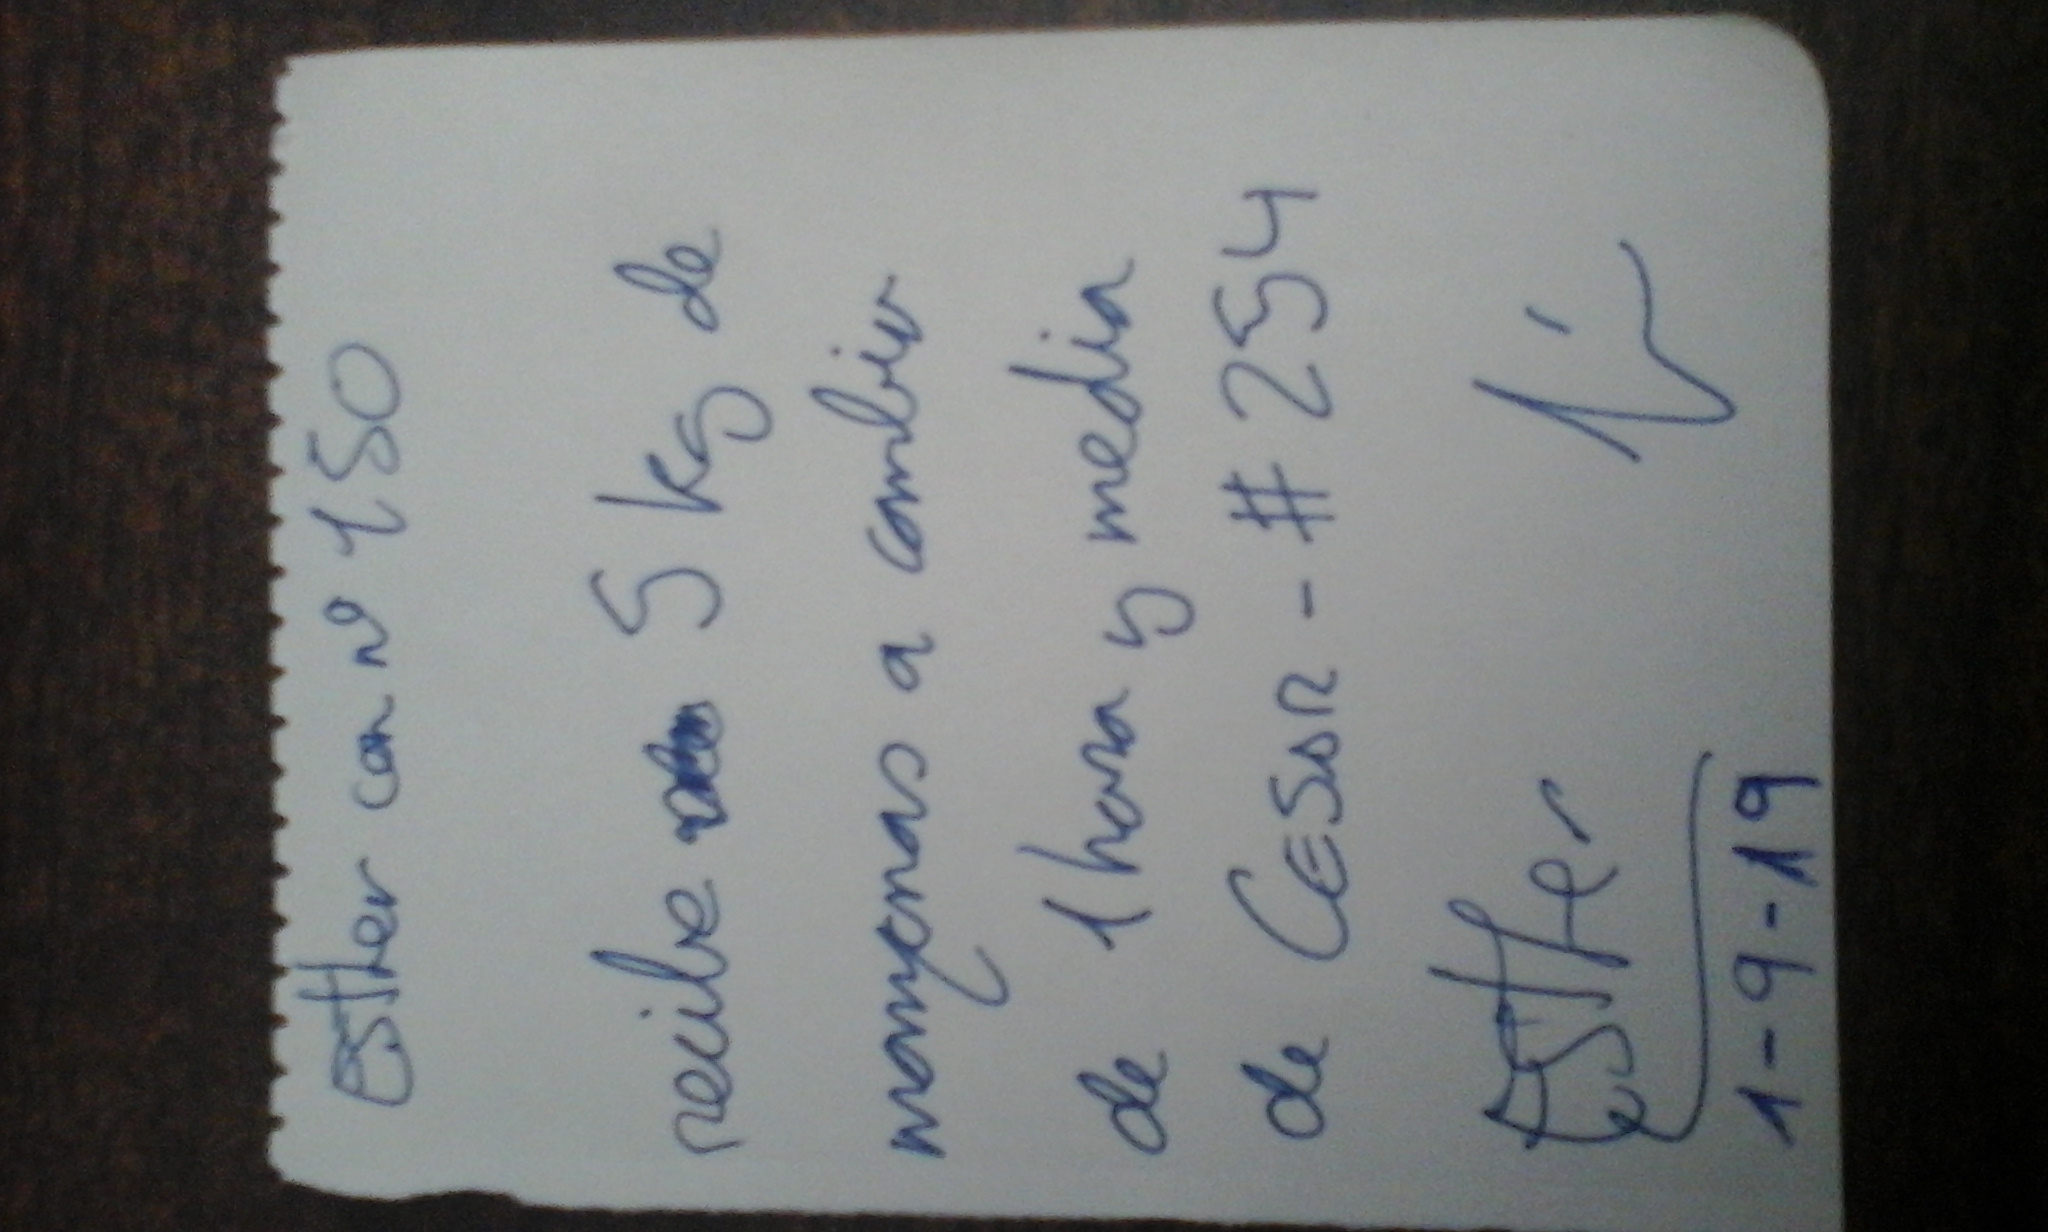 Esther con nº 150
recibe 5 kg de
manzanas a cambio
de 1 hora y media
de CESAR - # 254
Esther
1-9-19